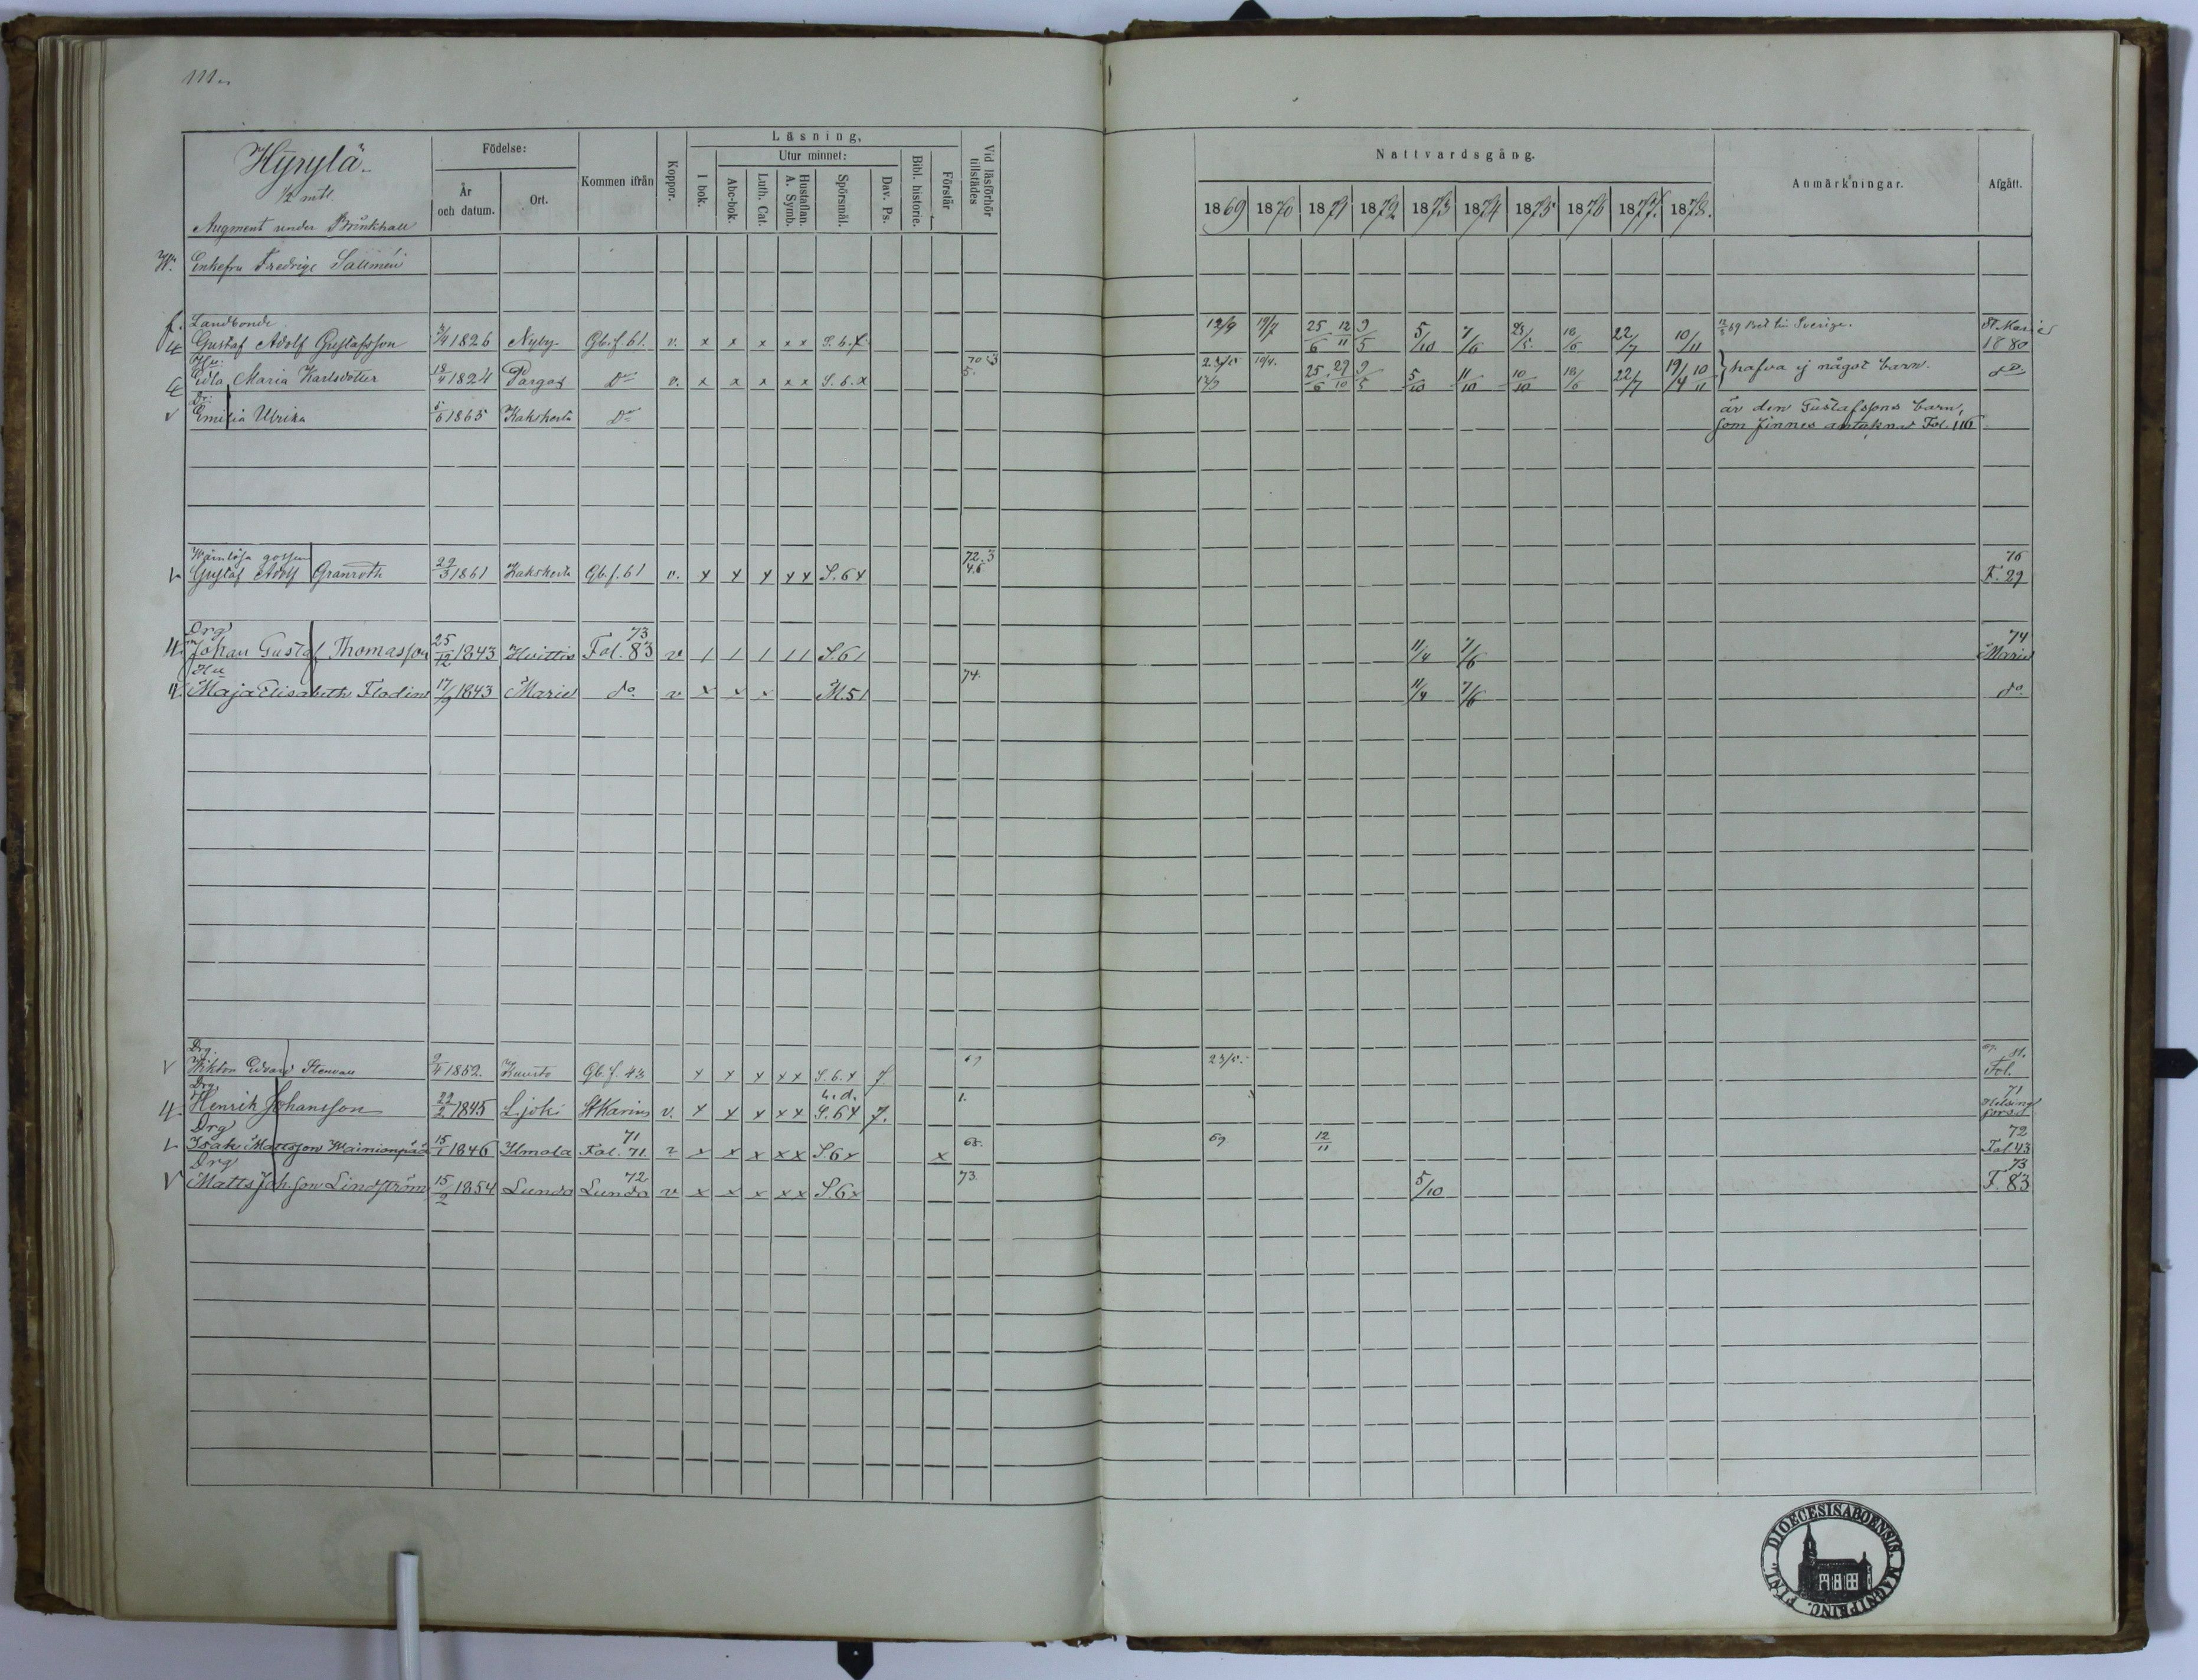 111.
Hyrylä
1/2 mtl.
Augment under Brinkhall
Födelse:
År och datum.
Ort.
Kommen ifrån
Koppor.
Läsning,
I bok.
Utur minnet:
Abc-bok.
Luth. Cat.
Hustaflan. A. Symb.
Spörsmål.
Dav. Ps.
Bibl. historie.
Förstår
Vid läsförhör tillstädes
Nattvardsgång.
1869 1870 1871 1872 1873 1874 1875 1876 1877. 1878.
Anmärkningar.
Afgått.
Enkefru Fredrige Sallmén
Landbonde
Gustaf Adolf Gustafsson 1826 Nyby Gb. f. 61. v. x x x x x S. 6. x 12/9 19/7 25/6 12/11 9/5 5/10 7/6 23/5 18/6 22/7 10/11 69 Sverige. St. Marie 1880
Hu:
Edla Maria Karlsdotter 18/4 1824 Pargas Do v. x x x x x S. 6. x 70 5. 10/4. 25/6 29/10 9/5 5/10 11/10 10/10 18/6 22/7 19/4 10/11 } hafva ej något barn. do
Dr:
Emilia Ulrika 1865 Kakskerta Do är den Gustafssons barn,
som finnes antecknad Fol. 116
Wärnlösa gossen
Gustaf Adolf Granroth 22/3 1861 Kakskerta Gb. f. 61 v. x x x x x S. 6 x 72. 3 4. 6 76 F. 29
Drg
Johan Gustaf Thomasson 25/12 1843 Hvittis 73 Fol. 83 v / / / / / S. 6 / 11/4 7/6 74 Marie
Hu
Maja Elisabeth Flodin 17/9 1843 Marie do. v x x x M. 5 / 74. 11/4 7/6 do
Drg.
Viktor Edvard Stenvall 9/4 1852. Kuusto Gb. f. 43 x x x x x S. 6. x 7 69 23/5. Fol.
Drg
Henrik Johansson 22/2 1845 L.joki St Karins v. x x x x x S. 6 x 7. 1. 71 Helsingfors
Drg
Isak Mattsson Wainionpää 15/1 1846 Ilmola 71 Fol. 71. v x x x x x S. 6 x x 68. 69 12/11 72 Fol. 43
Drg
Matts Joh.son Lindström 15/2 1854 Lundo 72 Lundo v x x x x x S. 6 x 73 5/10 73 F. 83
FINL. DIOECESIS ABOENSIS. MAGNI PRINC.